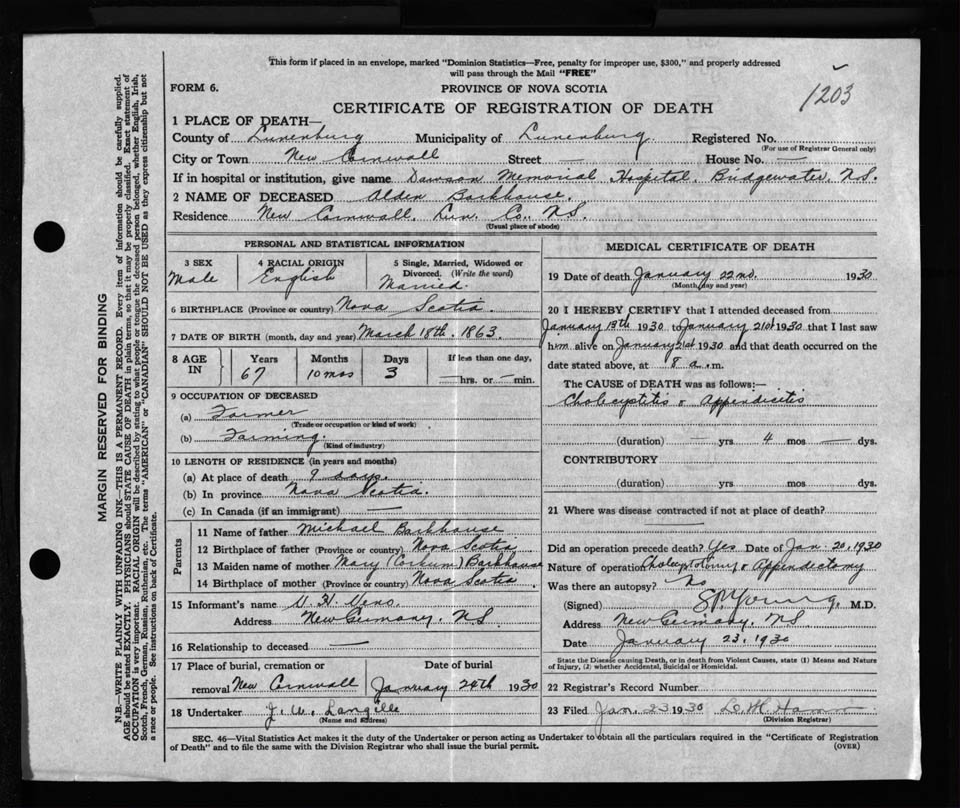 This form if placed in an envelope, marked "Dominion Statistics—Free, penalty for improper use, $300," and properly addressed
will pass through the Mail "FREE"
1203
FORM 6.
PROVINCE OF NOVA SCOTIA
CERTIFICATE OF REGISTRATION OF DEATH
1 PLACE OF DEATH—
County of Lunenburg Municipality of Lunenburg. Registered No.
(For use of Registrar General only)
City or Town New Cornwall Street — House No. —
If in hospital or institution, give name Dawson Memorial Hospital, Bridgewater, N.S.
2 NAME OF DECEASED Alden Barkhouse.
Residence New Cornwall, Lun. Co., N.S.
(Usual place of abode)
PERSONAL AND STATISTICAL INFORMATION
3 SEX Male
4 RACIAL ORIGIN English
5 Single, Married, Widowed or Divorced. (Write the word) Married.
6 BIRTHPLACE (Province or country) Nova Scotia.
7 DATE OF BIRTH (month, day and year) March 18th. 1863
8 AGE IN Years 67 Months 10 mos Days 3 If less than one day, — hrs. or — min.
9 OCCUPATION OF DECEASED
(a) Farmer
(Trade or occupation or kind of work)
(b) Farming.
(Kind of industry)
10 LENGTH OF RESIDENCE (in years and months)
(a) At place of death 9 days.
(b) In province Nova Scotia.
(c) In Canada (if an immigrant) —
Parents
11 Name of father Michael Barkhouse
12 Birthplace of father (Province or country) Nova Scotia
13 Maiden name of mother Mary (Corkum) Barkhouse
14 Birthplace of mother (Province or country) Nova Scotia.
15 Informant's name
Address New Germany, N.S
16 Relationship to deceased —
17 Place of burial, cremation or removal New Cornwall
Date of burial January 24th 1930
18 Undertaker J. W. Langille
(Name and address)
MEDICAL CERTIFICATE OF DEATH
19 Date of death January 22nd. 1930
(Month, day and year)
20 I HEREBY CERTIFY that I attended deceased from
January 13th 1930 to January 21st 1930 that I last saw
him alive on January 21st 1930 and that death occurred on the
date stated above, at 8 a.m.
The CAUSE of DEATH was as follows:—
Cholecystitis & Appendicitis
(duration) — yrs 4 mos — dys.
CONTRIBUTORY
(duration) yrs. mos. dys.
21 Where was disease contracted if not at place of death? —
Did an operation precede death? Yes Date of Jan. 20, 1930
Nature of operation Cholecystotomy & Appendictomy
Was there an autopsy? No
(Signed) Young, M.D.
Address New Germany, N.S
Date January 23, 1930
State the Disease causing Death, or in death from Violent Causes, state (1) Means and Nature
of Injury, (2) whether Accidental, Suicidal or Homicidal.
22 Registrar's Record Number
23 Filed Jan. 23 1930
(Division Registrar)
SEC. 46—Vital Statistics Act makes it the duty of the Undertaker or person acting as Undertaker to obtain all the particulars required in the "Certificate of Registration
of Death" and to file the same with the Division Registrar who shall issue the burial permit.
(OVER)
MARGIN RESERVED FOR BINDING
N.B.—WRITE PLAINLY WITH UNFADING INK—THIS IS A PERMANENT RECORD. Every item of information should be carefully supplied.
AGE should be stated EXACTLY. PHYSICIANS should STATE CAUSE OF DEATH in plain terms, so that it may be properly classified. Exact statement of
OCCUPATION is very important. RACIAL ORIGIN will be described by stating to what people or tongue the deceased person belonged, whether English, Irish,
Scotch, French, German, Russian, Ruthenian, etc. The terms "AMERICAN" or "CANADIAN" SHOULD NOT BE USED as they express citizenship but not
a race or people. See instructions on back of Certificate.